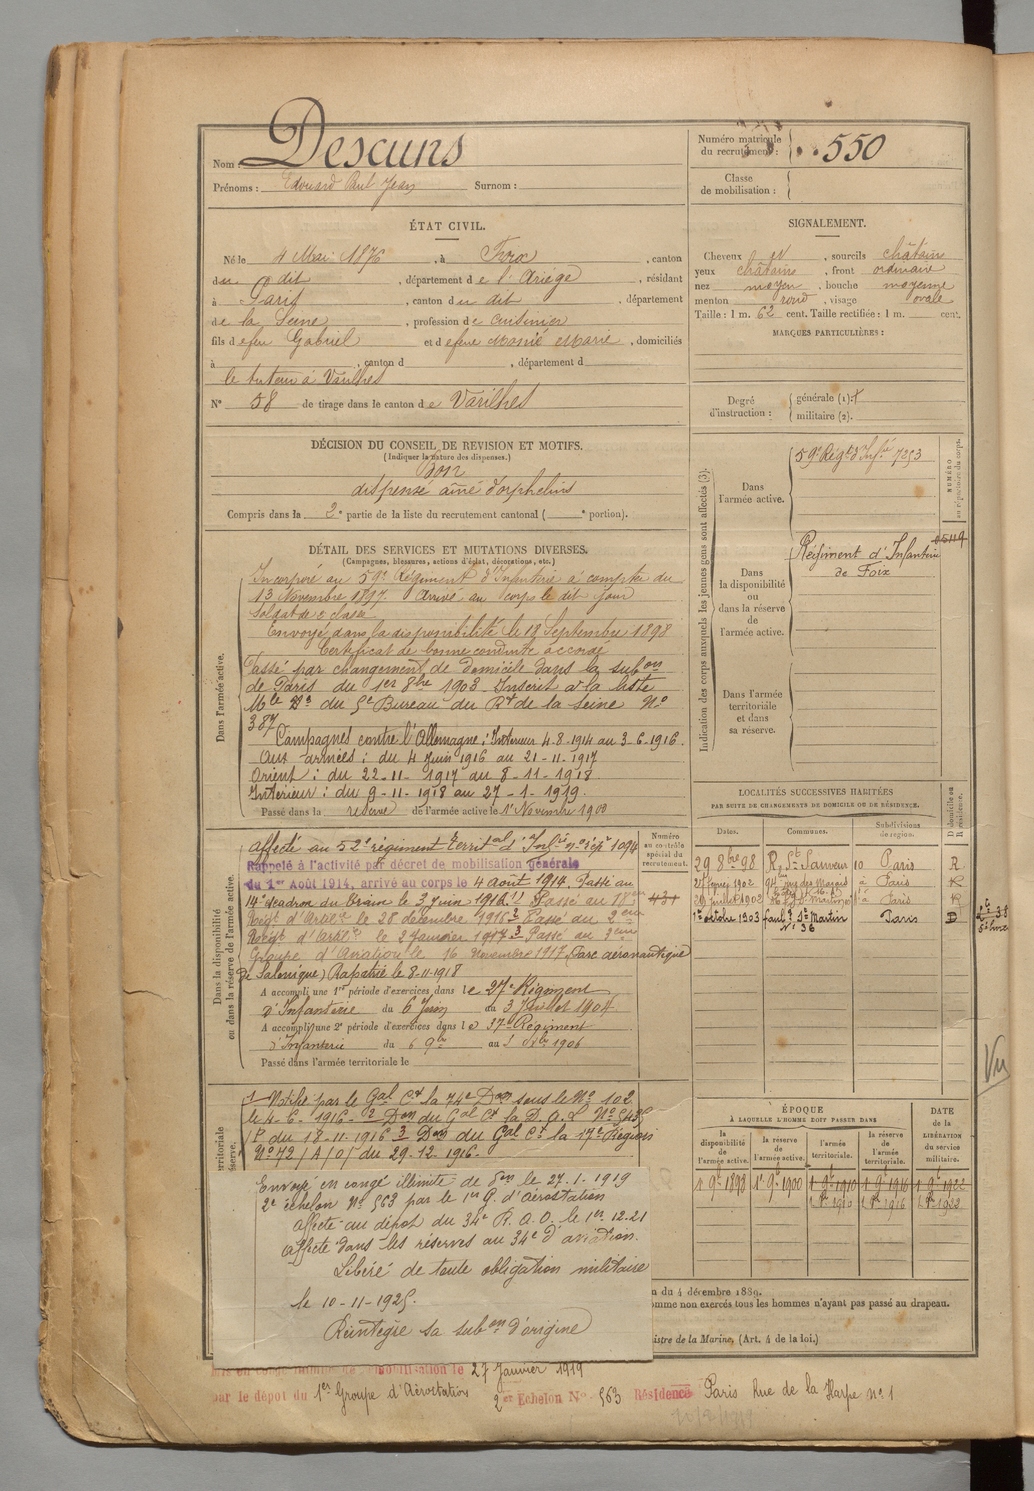 Nom Descuns
Prénoms : Edouard Paul Jean Surnom :
Numéro matricule
du recrutement : 550
Classe
de mobilisation :
ÉTAT CIVIL.
Né le 4 Mai 1876, à Foix, canton
du dit, département de l'Ariège, résidant
à Paris, canton du dit, département
de la Seine, profession de cuisinier
fils de feu Gabriel et de feue Marie, domiciliés
à , canton d , département d
le tuteur à Varilhes
N° 58 de tirage dans le canton de Varilhes
SIGNALEMENT.
Cheveux , sourcils châtains
yeux châtains, front ordinaire
nez moyen, bouche moyenne
menton rond, visage ovale
Taille : 1 m. 62 cent. Taille rectifiée : 1 m. cent.
MARQUES PARTICULIÈRES :
Degré
d'instruction :
générale (1) :
militaire (2).
DÉCISION DU CONSEIL DE REVISION ET MOTIFS.
(Indiquer la nature des dispenses.)
Bon
dispensé aîné d'orphelins
Compris dans la 2e partie de la liste du recrutement cantonal ( e portion).
DÉTAIL DES SERVICES ET MUTATIONS DIVERSES.
(Campagnes, blessures, actions d'éclat, décorations, etc.)
Dans l'armée active.
Incorporé au 59e Régiment d'Infanterie à compter du
13 Novembre 1897. Arrivé au corps le dit jour
soldat de 2 classe
Envoyé dans la disponibilité le 18 Septembre 1898
Certificat de bonne conduite accordé
Passé par changement de domicile dans la subon
de Paris du 1er 8bre 1903. Inscrit à la liste
Mle du 5e Bureau du Rt de la Seine No
387
Campagnes contre l'Allemagne : Intérieur 4-8-1914 au 3-6-1916.
Aux armées : du 4 Juin 1916 au 21-11-1917
Orient : du 22-11-1917 au 8-11-1918
Intérieur : du 9-11-1918 au 27-1-1919.
Passé dans la réserve de l'armée active le 1r Novembre 1900
Indication des corps auxquels les jeunes gens sont affectés (3).
Dans
l'armée active.
59e Régt d'Infrie 7253
NUMÉRO
au répertoire du corps.
Dans
la disponibilité
ou
dans la réserve
de
l'armée active.
Régiment d'Infanterie
de Foix
Dans l'armée
territoriale
et dans
sa réserve.
Dans la disponibilité
ou dans la réserve de l'armée active.
Affecté au 52e régiment Territal d'Infrie no répre 1094
Rappelé à l'activité par décret de mobilisation générale
du 1er Août 1914, arrivé au corps le 4 août 1914. Passé au
14e escadron du train le 3 juin 1916. Passé au 18
Régt d'Artie le 28 décembre 1916 3 Passé au 2
Régt d'Artie le 2 Janvier 1917 3 Passé au 2
Groupe d'Aviation le 16 Novembre 1917 (Parc aéronautique
de Salonique) Rapatrié le 8-11-1918
A accompli une 1re période d'exercices dans le 27e Régiment
d'Infanterie du 6 Juin au 3 Juillet 1904
A accompli une 2e période d'exercices dans le 37e Régiment
d'Infanterie du 6 9bre au 1906
Passé dans l'armée territoriale le
Numéro
au contrôle
spécial du
recrutement.
431
LOCALITÉS SUCCESSIVES HABITÉES
PAR SUITE DE CHANGEMENTS DE DOMICILE OU DE RÉSIDENCE.
Dates. Communes. Subdivisions
de région. D. domicile ou
R. résidence.
29 8bre 98 R. St Sauveur 10 Paris R.
2 février 1902 94 rue des Marais à Paris R
29 juillet 1902 à Paris R
1er octobre 1903 faubg St Martin Paris D
No 36
Vu
1 Notifié par le Gal Ct la 74e Don sous le No 102
le 4-6-1916 - 2 Don du Gal Ct la D.A.L No 5435
/P du 18-11-1916 3 Don du Gal Ct la 17e Région
No 72/A/O/ du 29-12-1916.
Envoyé en congé illimité de le 27-1-1919
2e échelon No 563 par le 1er G. d'aérostation
affecté au dépôt du 34e R.A.O. le 1er-12-21
affecté dans les réserves au 34e d'aviation.
Libéré de toute obligation militaire
le 10-11-1925.
Réintègre sa subon d'origine
ÉPOQUE
À LAQUELLE L'HOMME DOIT PASSER DANS
DATE
de la
LIBÉRATION
du service
militaire.
la
disponibilité
de
l'armée active.
la réserve
de
l'armée active.
l'armée
territoriale.
la réserve
de
l'armée
territoriale.
1 9e 1898 1r 9e 1900 1 9e 1910 1 9e 1916 1 9e 1922
1910 1916 1922
n du 4 décembre 1889.
omme non exercés tous les hommes n'ayant pas passé au drapeau.
istre de la Marine, (Art. 4 de la loi.)
mobilisation le 27 Janvier 1919
par le dépôt du 1er Groupe d'Aérostation 2e Echelon No 563 Résidence Paris Rue de la Harpe no 1